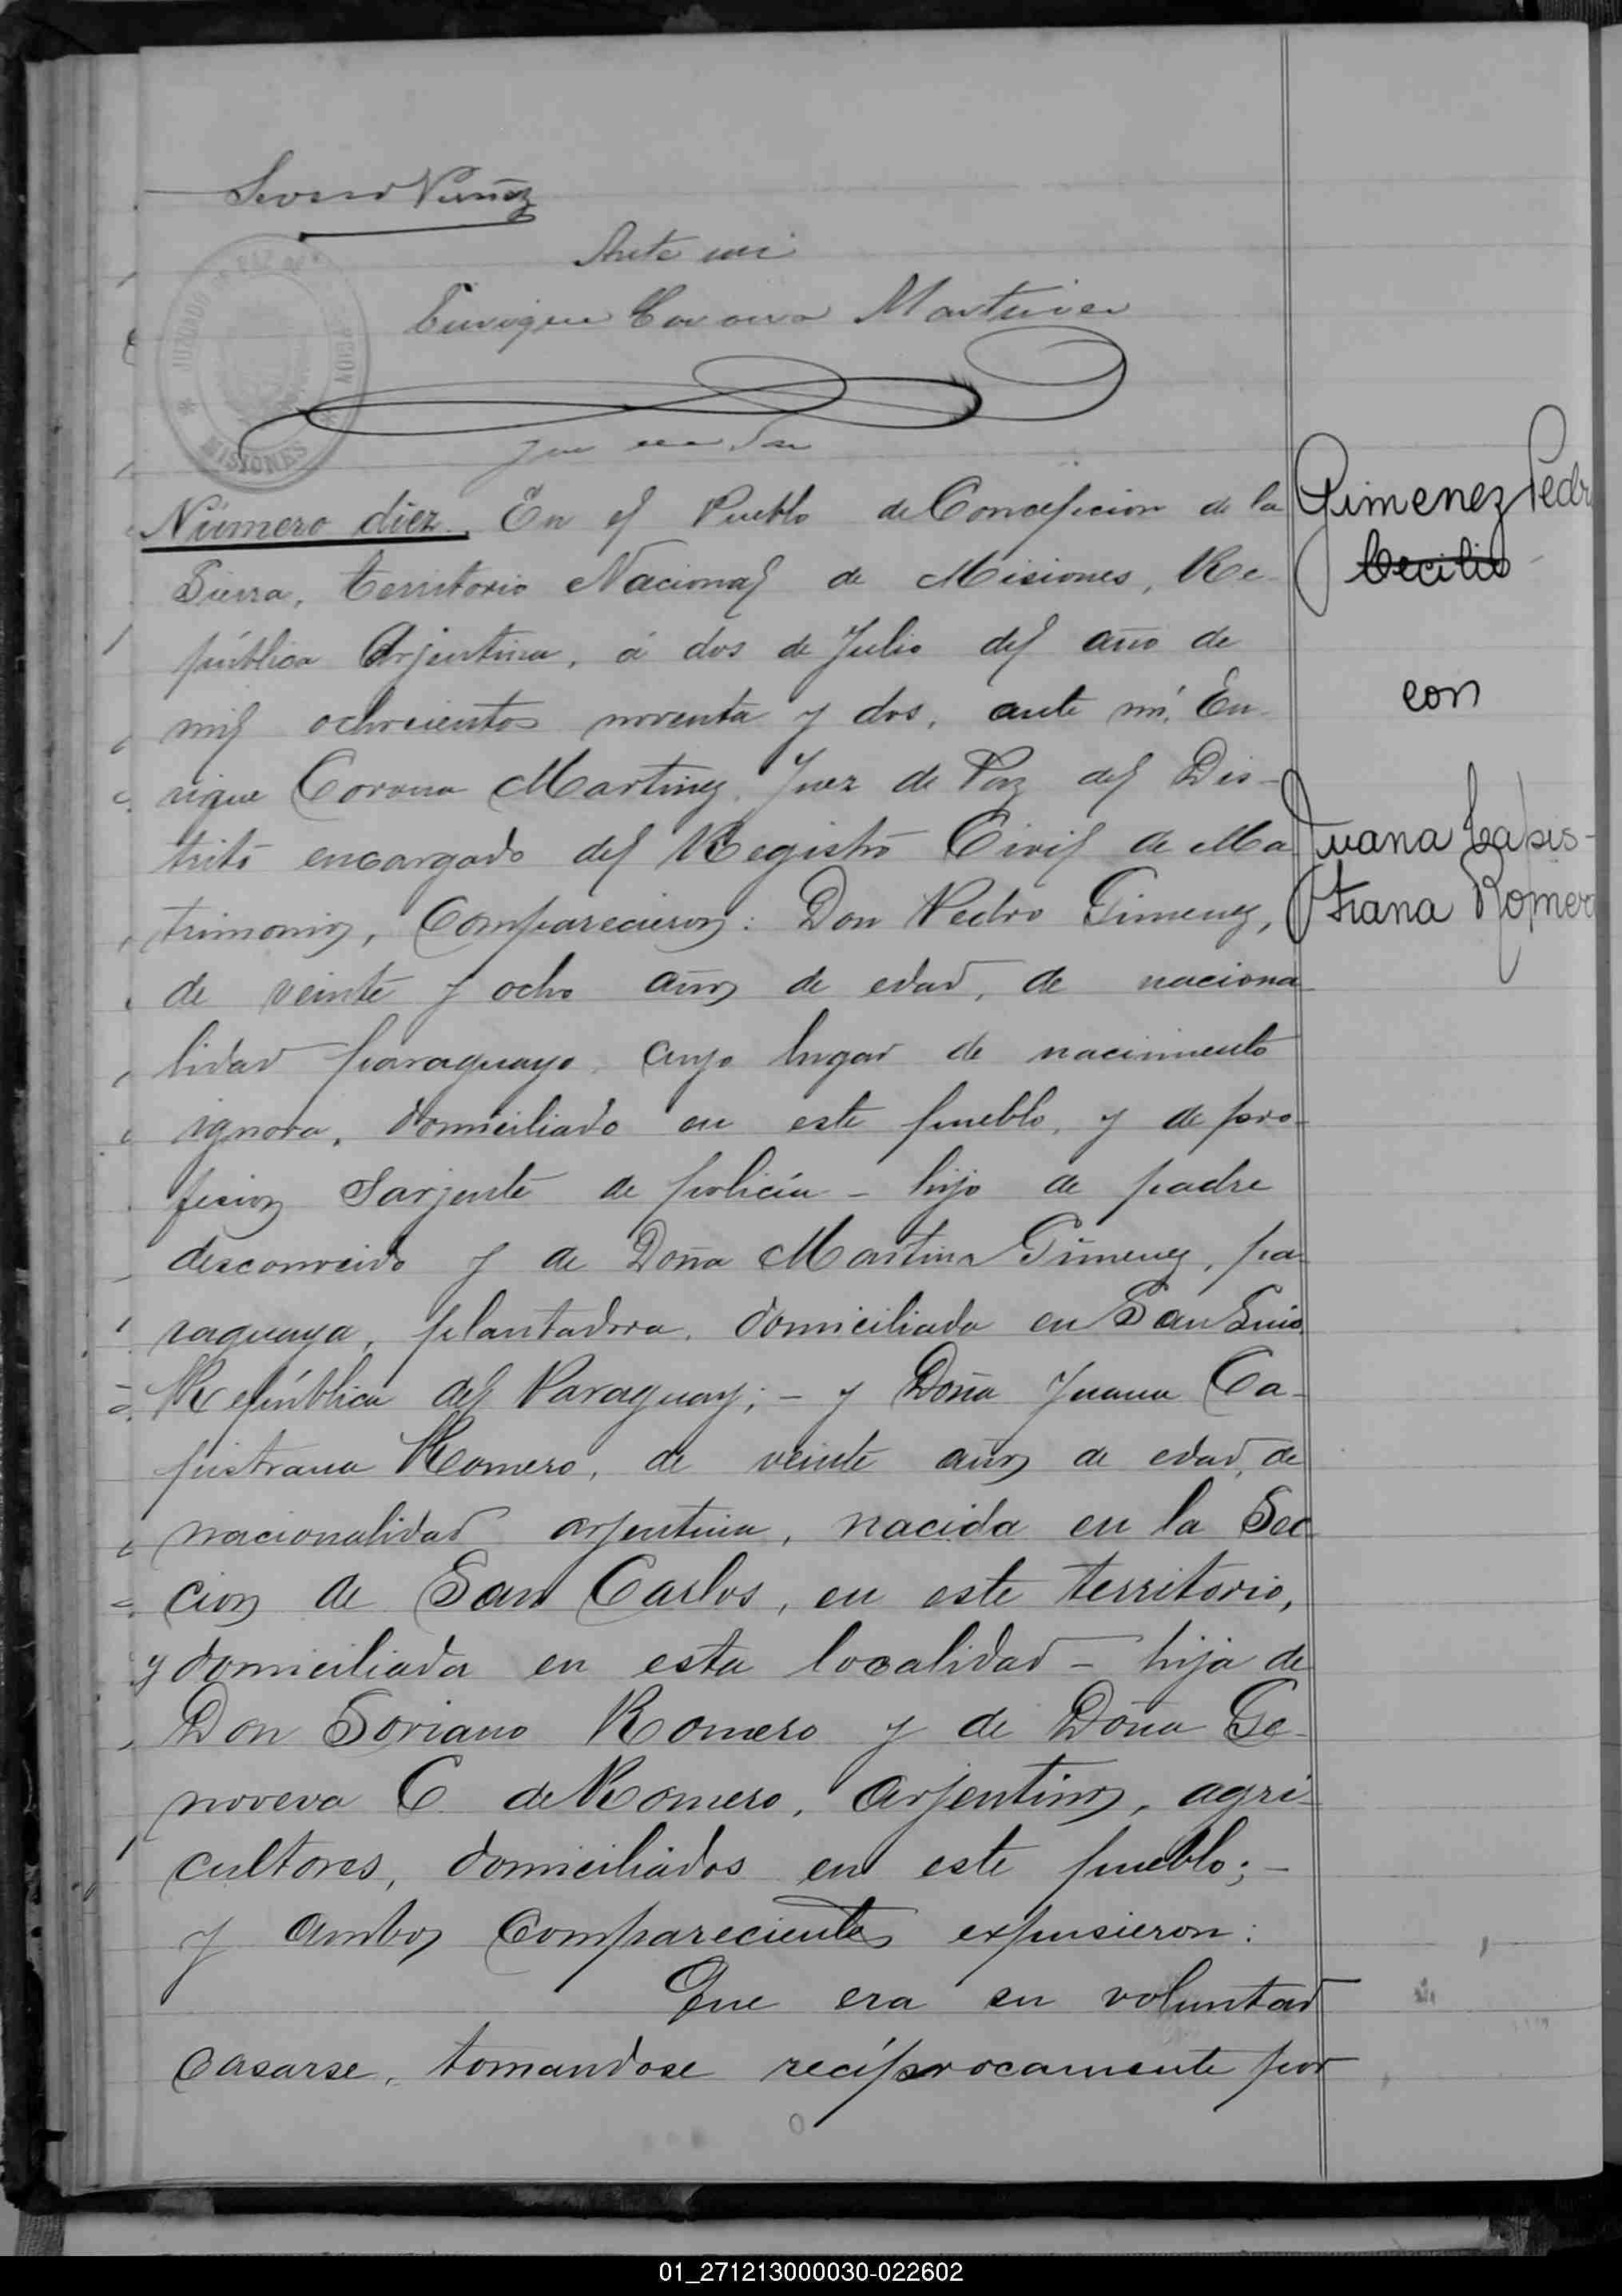 Severo Nuñez
Ante mi
Enrique Corona Martinez
JUZGADO DE PAZ
MISIONES
Número diez. En el Pueblo de Concepcion de la
Sierra, territorio Nacional de Misiones, Re-
pública Arjentina, á dos de Julio del año de
mil ochocientos noventa y dos, ante mí, En-
rique Corona Martinez, Juez de Paz del Dis-
trito encargado del Registro Civil de Ma
trimonios, Comparecieron: Don Pedro Gimenez,
de veinte y ocho años de edad, de naciona
lidad paraguayo, cuyo lugar de nacimiento
ignora, domiciliado en este pueblo, y de pro-
fesion Sarjento de policía - hijo de padre
desconocido y de Doña Martina Gimenez, pa-
raguaya, plantadora, domiciliada en San Luis
República del Paraguay; - y Doña Juana Ca-
pistrana Romero, de veinte años de edad, de
nacionalidad arjentina, nacida en la Sec
cion de San Carlos, en este territorio,
y domiciliada en esta localidad - hija de
Don Soriano Romero y de Doña Ge-
noveva C. de Romero, arjentinos, agri-
cultores, domiciliados en este pueblo; -
y ambos Comparecientes expusieron:
Que era su voluntad
casarse, tomandose recíprocamente por
Gimenez Pedr
Cecilio
con
Juana Capis-
trana Romero
01_271213000030-022602